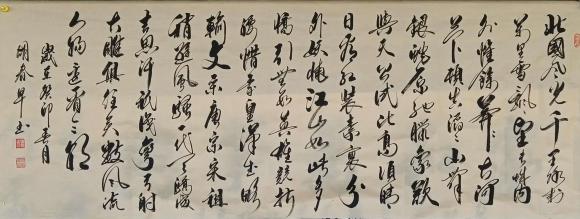 北國風光千里冰封
萬里雪飄望長城內
外惟餘莽莽大河
上下頓失滔滔山舞
銀蛇原馳臘象欲
與天公試比高須晴
日看紅裝素裹分
外妖嬈江山如此多
嬌引無數英雄競折
腰惜秦皇漢武略
輸文采唐宗宋祖
稍遜風騷一代天驕成
吉思汗祇識彎弓射
大雕俱往矣數風流
人物還看今朝
歲在癸卯春月
胡春早書